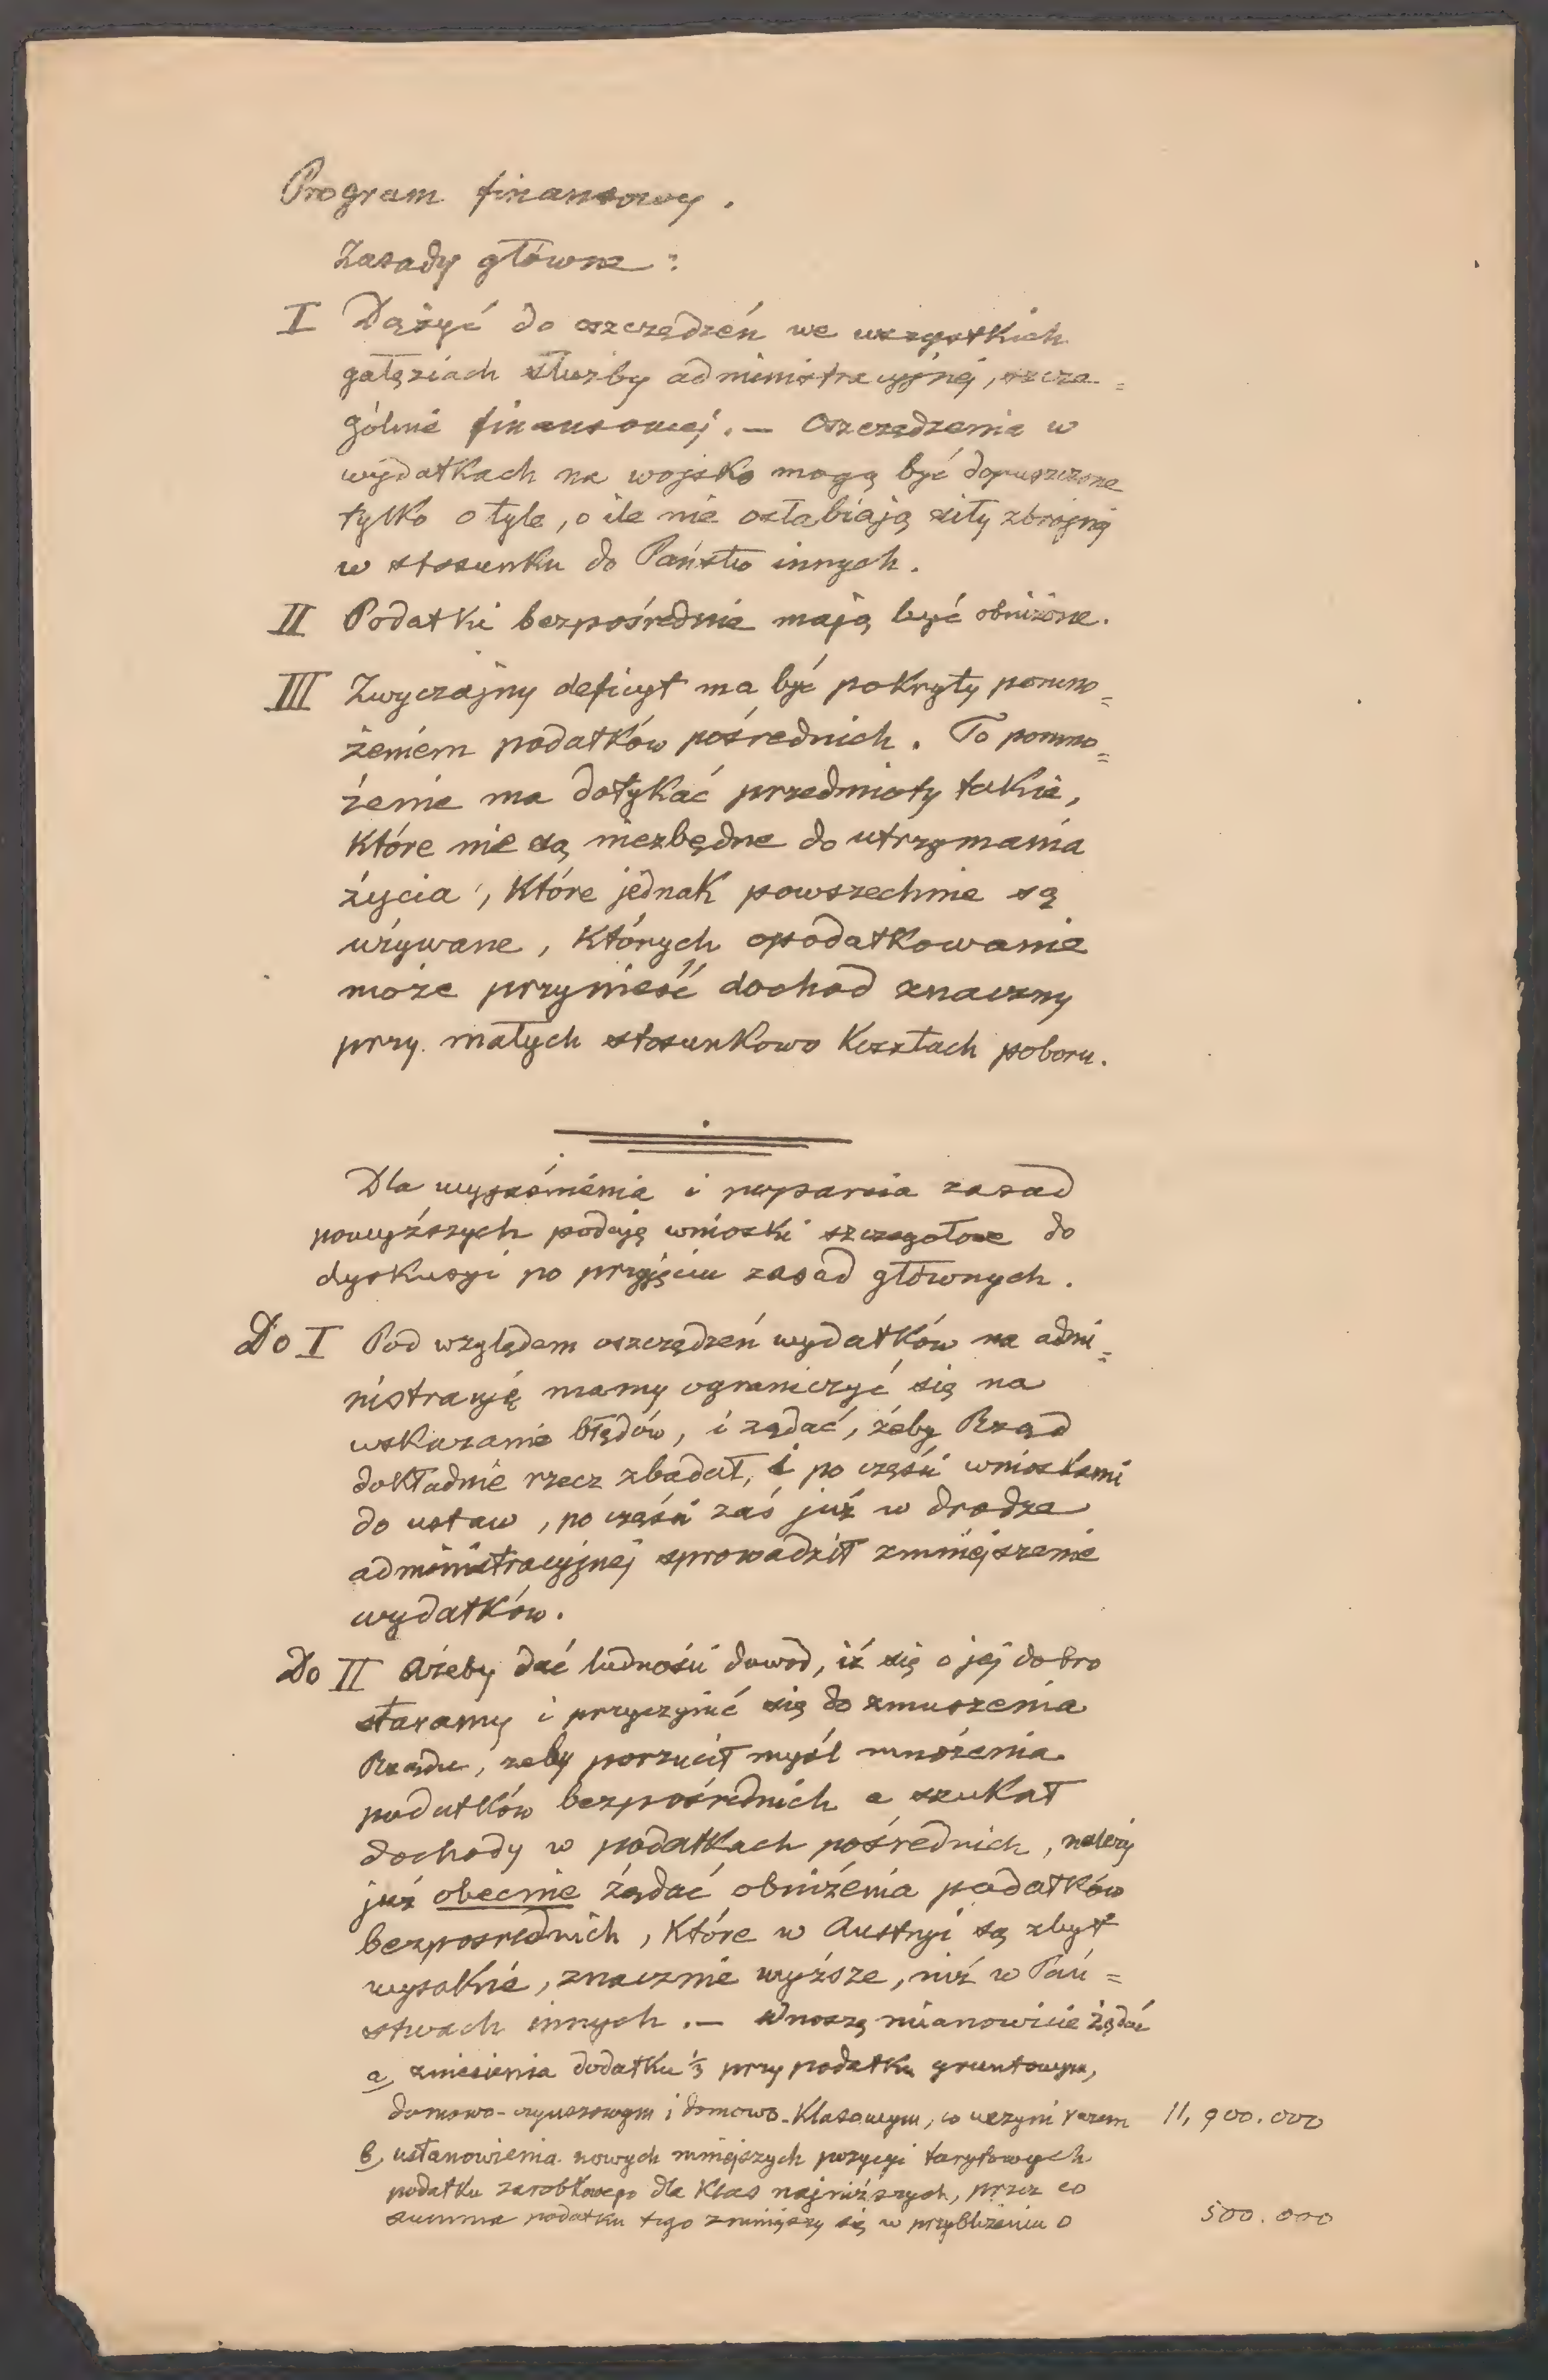 Program finansowy.
Zasady główne:
I Dążyć do oszczędzeń we wszystkich
gałęziach służby administracyjnej, szcze=
gólnie finansowej. — Oszczędzenia w
wydatkach na wojsko mogą być dopuszczone
tylko o tyle, o ile nie osłabiają siły zbrojnej
w stosunku do Państw innych.
II Podatki bezpośrednie mają być obniżone.
III Zwyczajny deficyt ma być pokryty pomno=
żeniem podatków pośrednich. To pomno=
żenie ma dotykać przedmioty takie,
które nie są niezbędne do utrzymania
życia, które jednak powszechnie są
używane, których opodatkowanie
może przynieść dochod znaczny
przy małych stosunkowo kosztach poboru.
Dla wyjaśnienia i poparcia zasad
powyższych podaję wnioski szczegołowe do
dyskusyi po przyjęciu zasad głównych.
Do I Pod względem oszczędzeń wydatków na admi=
nistracyję mamy ograniczyć się na
wskazanie błędów, i żądać, żeby Rząd
dokładnie rzecz zbadał, i po części wnioskami
do ustaw, po części zaś już w drodze
administracyjnej sprowadził zmniejszenie
wydatków.
Do II Ażeby dać ludności dowod, iż się o jej dobro
staramy i przyczynić się do zmuszenia
Rządu, żeby porzucił myśl mnożenia
podatków bezpośrednich a szukał
dochody w podatkach pośrednich, należy
już obecnie żądać obniżenia podatków
bezposrednich, które w Austryi są zbyt
wysokie, znacznie wyższe, niż w Pań=
stwach innych. — Wnoszę mianowicie żądać
a, zniesienia dodatku ⅓ przy podatku gruntowym,
domowo-czynszowym i domowo-klasowym, co uczyni razem 11,900.000
b, ustanowienia nowych mniejszych pozycyi taryfowych
podatku zarobkowego dla klas najniższych, przez co
summa podatku tego zmniejszy się w przybliżeniu o 500.000